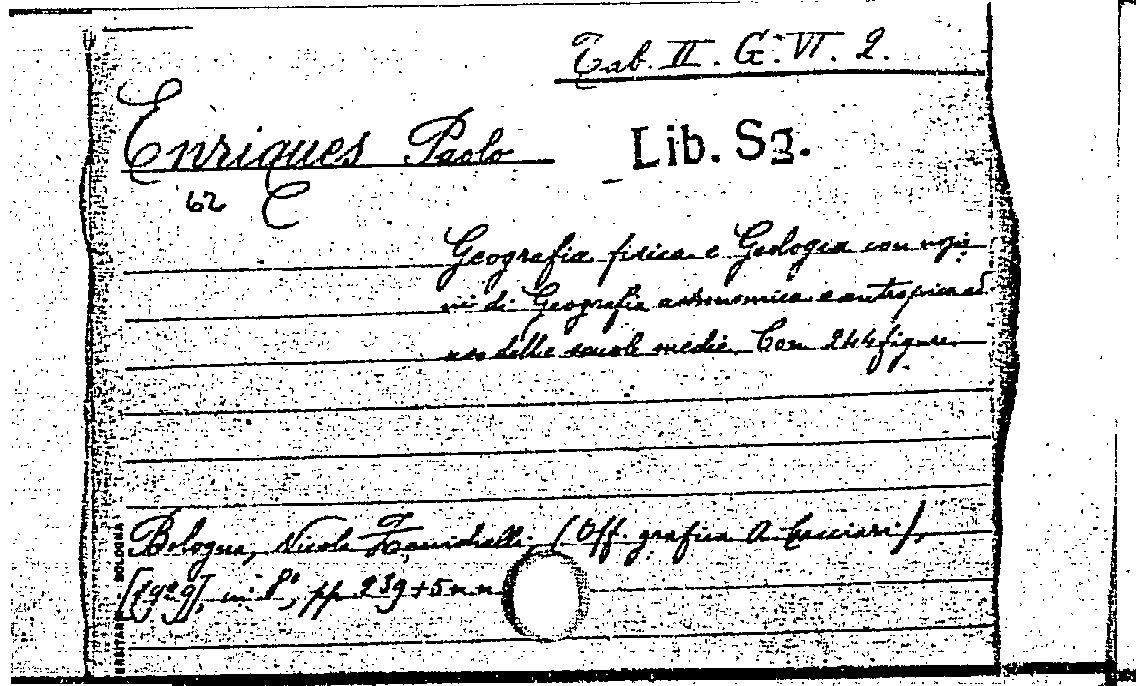 Tab. II. G. VI. 2.
Enriques Paolo
Lib. Sq.
62 C
Geografia fisica e Geologia con nozio
ni di Geografia astronomica e antropica ad
uso delle scuole medie. Con 244 figure.
Bologna, Nicola Zanichelli (Off. grafica A. Cacciari),
[1929], in 8°, pp. 239+5 n n
BOLOGNA